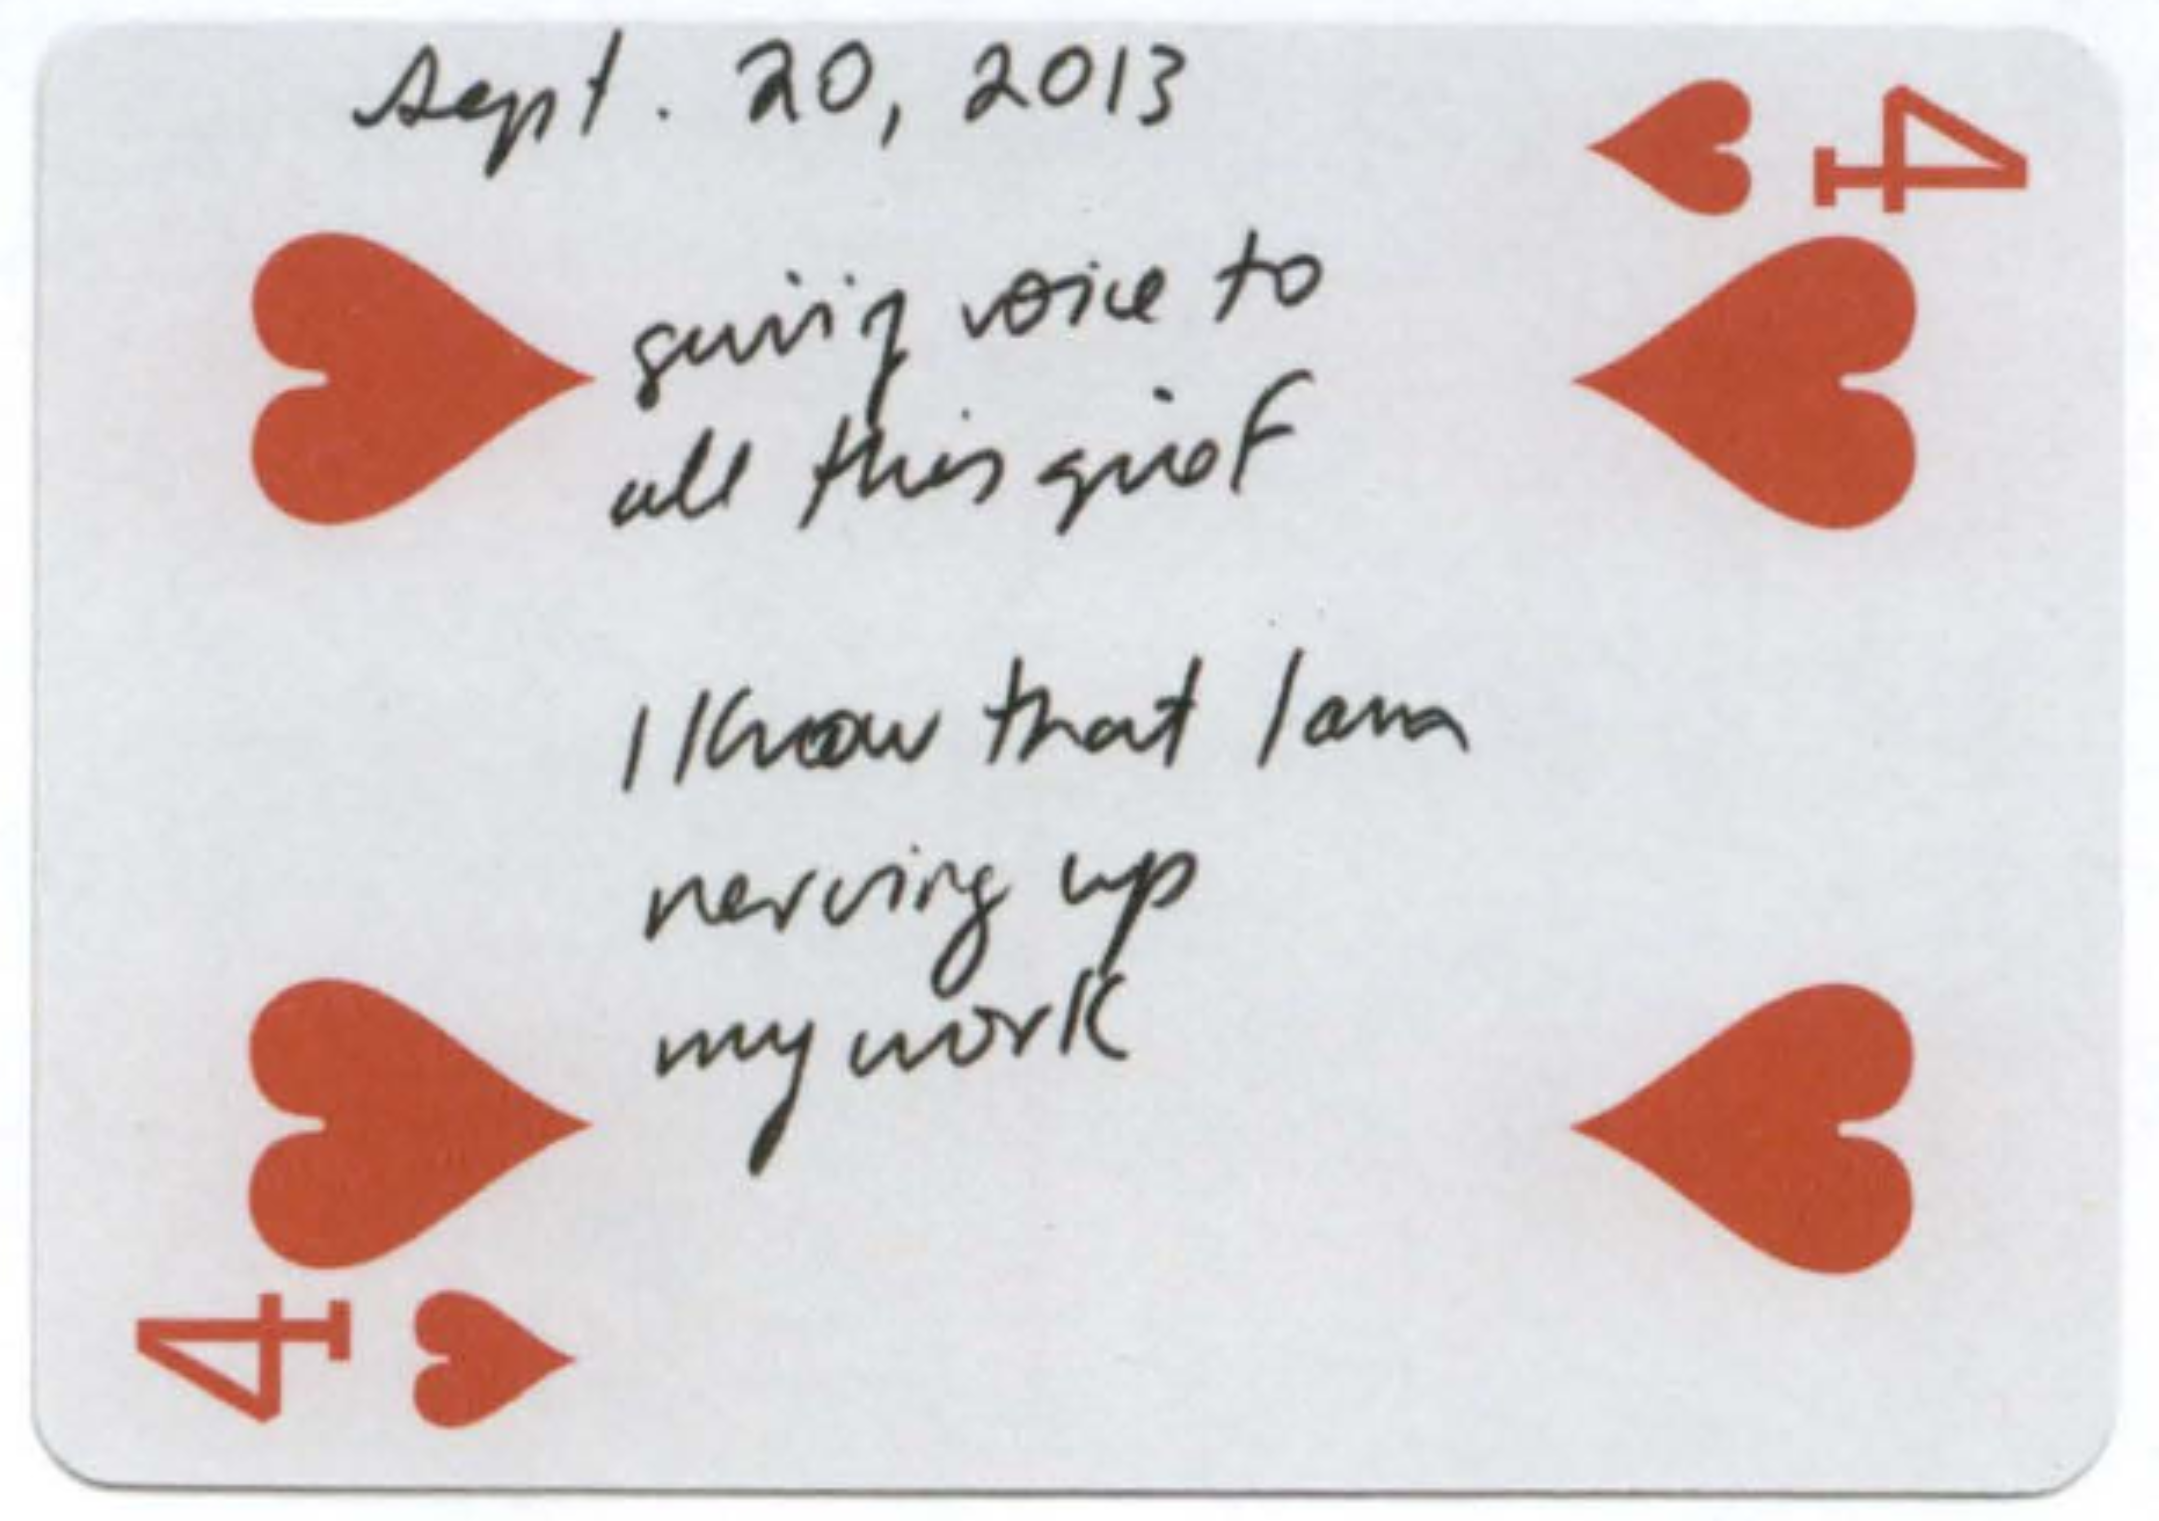 Sept. 20, 2013
4
giving voice to
all this grief
I know that I am
nerving up
my work
4